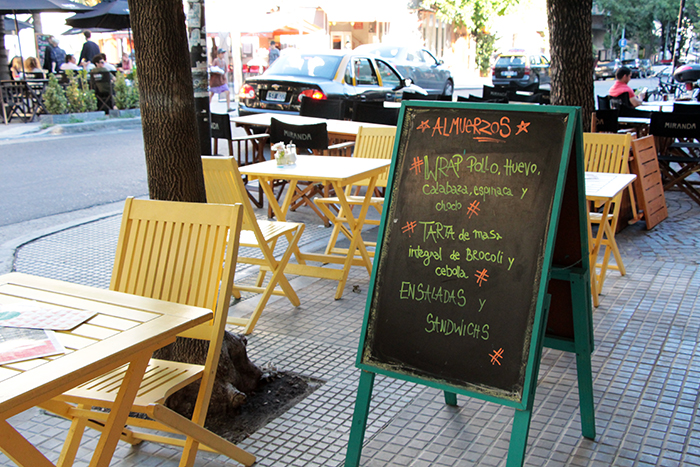 ☆ ALMUERZOS ☆
# WRAP Pollo, Huevo,
calabaza, espinaca y
choclo #
# TARTA de masa
integral de BROCOLI y
cebolla #
ENSALADAS y
SANDWICHS
#
MIRANDA
MIRANDA